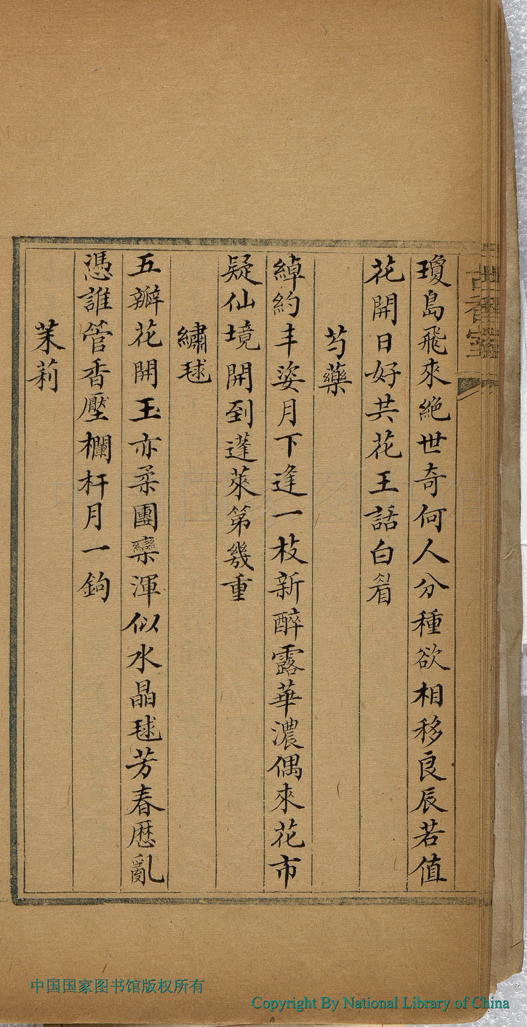 瓊島飛來絕世奇何人分種欲相移良辰若值
花開日好共花王話白
芍藥
綽約丰姿月下逢一枝新醉露華濃偶來花市
疑仙境開到蓬萊第幾重
繡毬
五瓣花開玉亦柔團欒渾似水晶毬芳春厯亂
憑誰管香壓欄杆月一鉤
茉莉
中国国家图书馆版权所有
Copyright By National Library of China